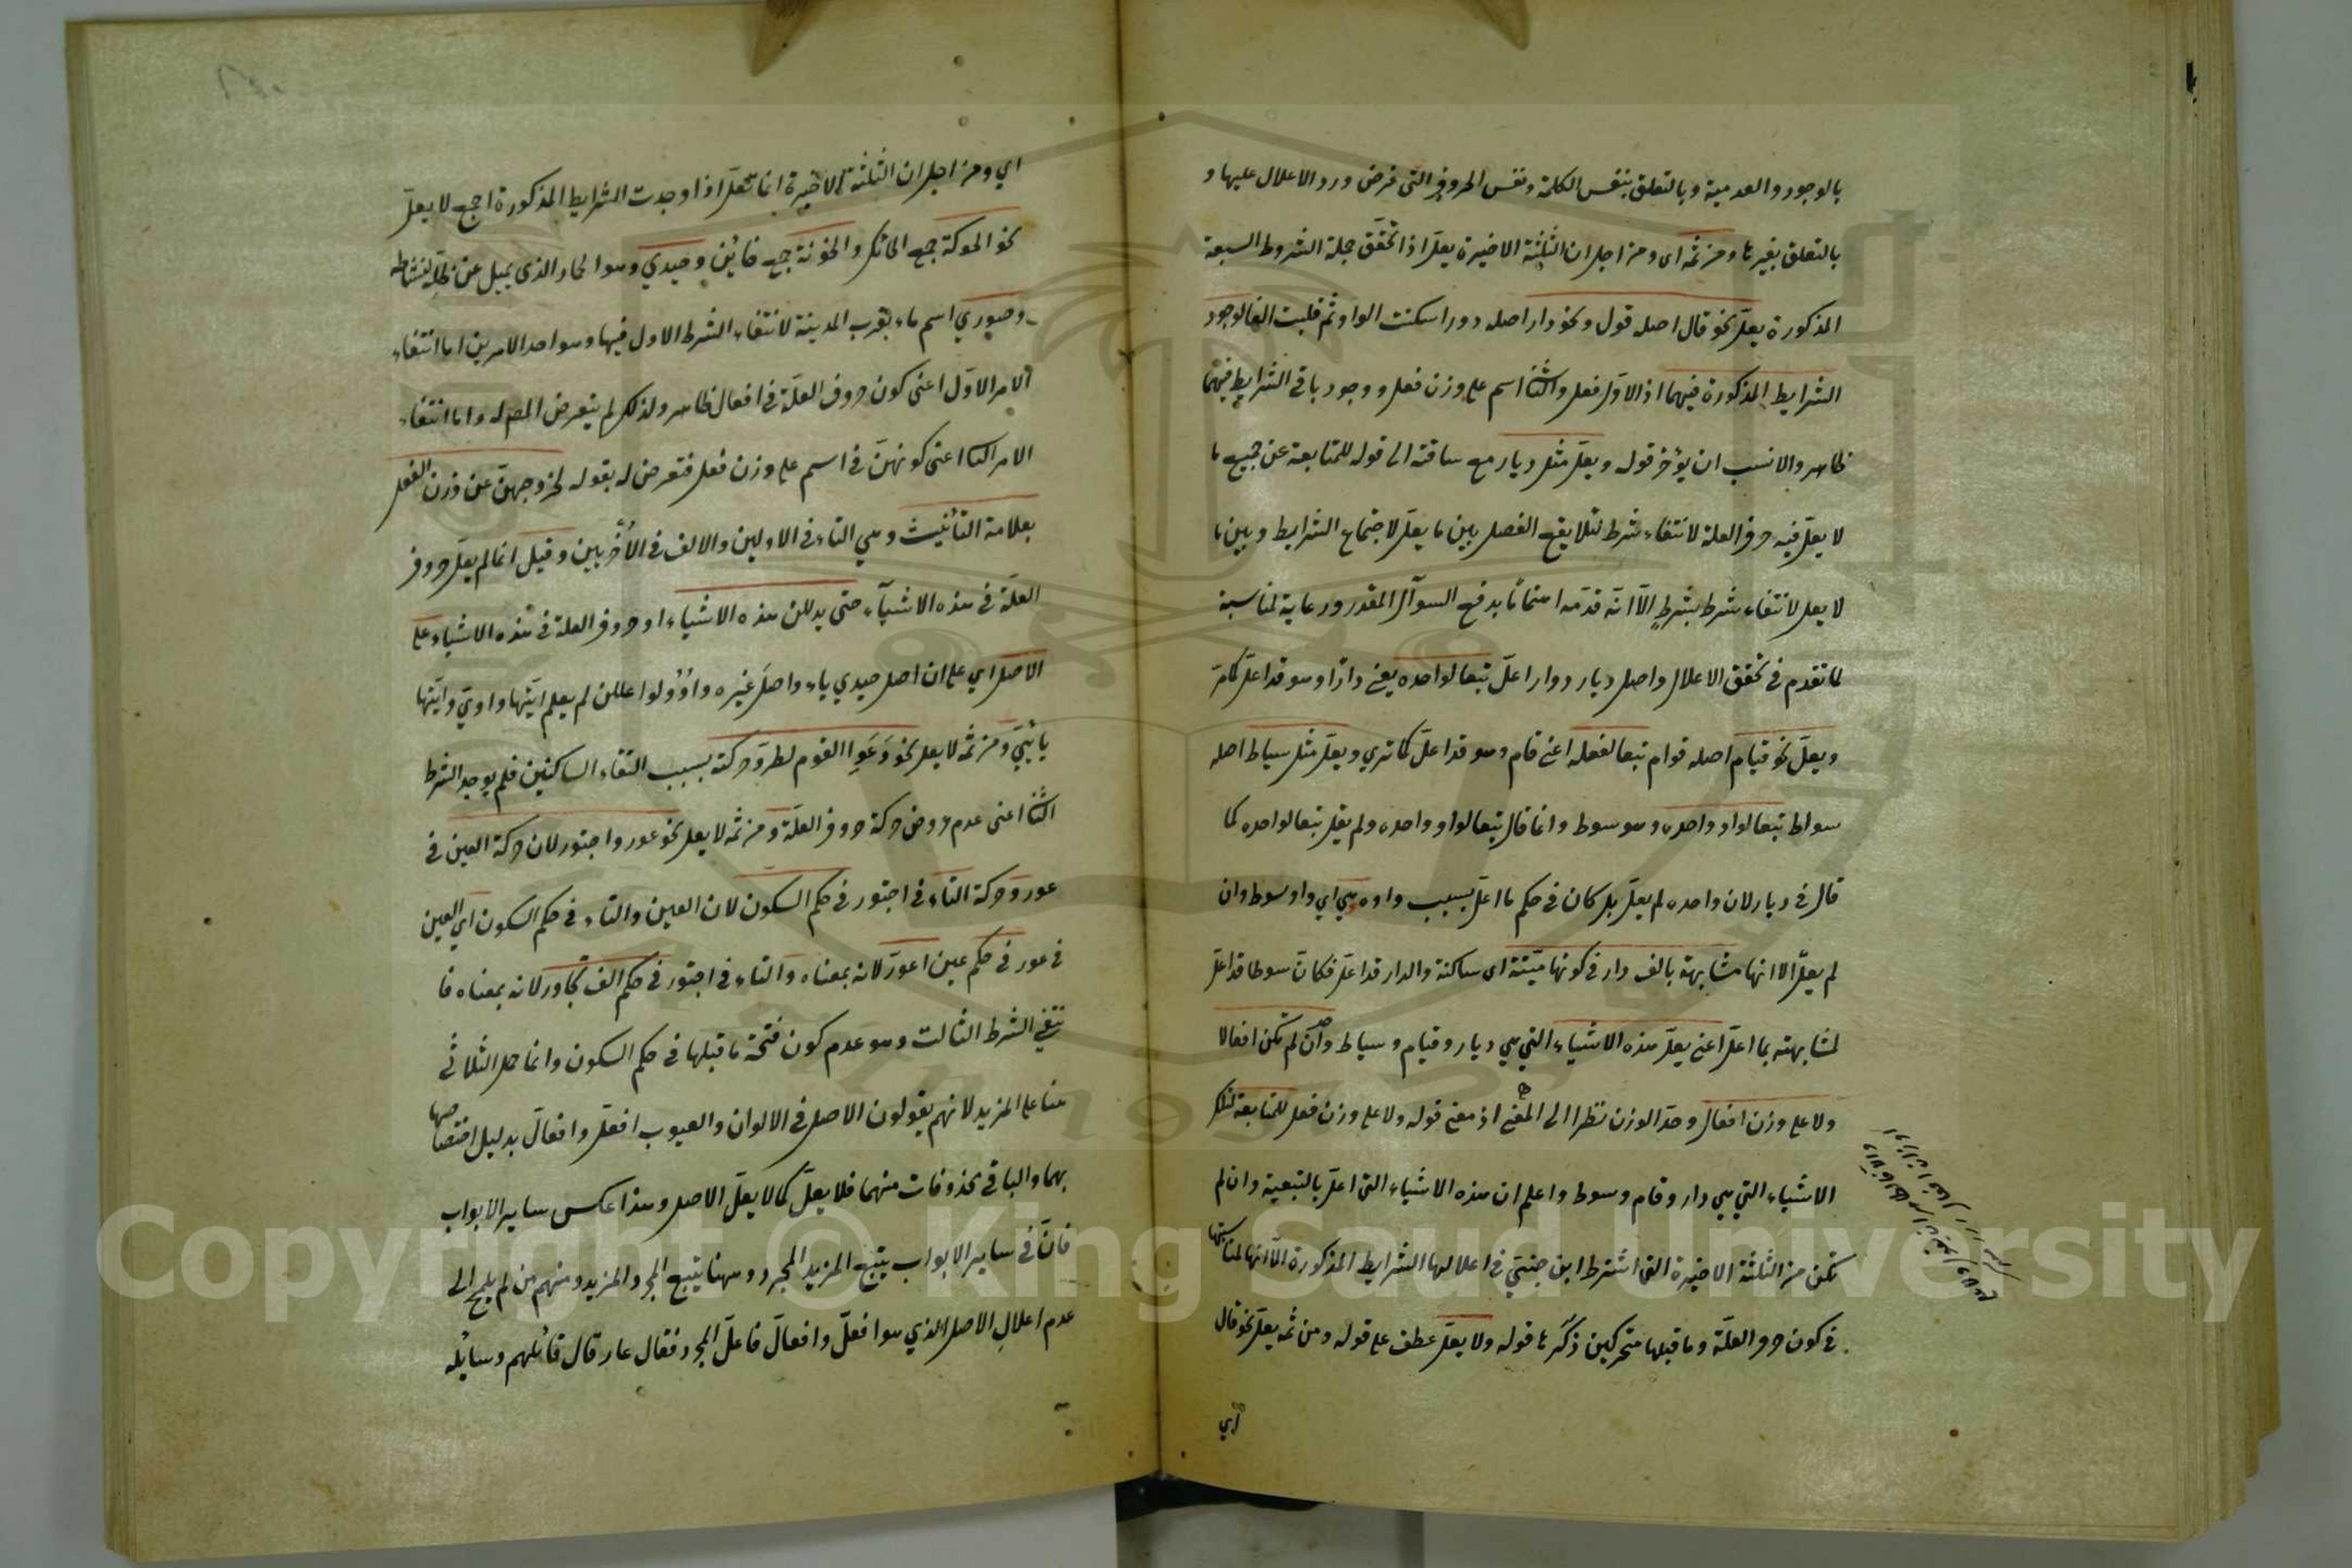 بالوجود والعدمية وبالتعلق بنفس الكلمة ونفس الحروف التى فرض ورد الاعلال عليها و
بالتعلق بغيرها ومن ثمه اى ومن اجل ان الثلثة الاخيرة يعلّ اذا تحقق جملة الشروط السبعة
المذكورة يعلّ نحو قال اصله قول ونحو دار اصله دور اسكنت الواو ثم قلبت الفا لوجود
الشرايط المذكورة فيهما اذ الاوّل فعل والثا اسم على وزن فعل ووجود باقى الشرايط فيهما
ظاهر والانسب ان يؤخر قوله ويعلّ مثل ديار مع ساقته الى قوله للمتابعة عن جميع ما
لا يعلّ فيه حرف العلة لانتفاء شرط لئلا يقع الفصل بين ما يعلّ لاجتماع الشرايط وبين ما
لا يعل لانتفاء شرط بشرطٍ الّا انّه قدّمه اهتمامًا بدفع السوآل المقدر ورعاية لمناسبة
لما تقدم فى تحقق الاعلال واصل ديار دوار اعلّ تبعا لواحده يعنى دارًا وهو قد اعلّ كما مرّ
ويعلّ نحو قيام اصله قوام تبعا لفعله اعنى قام وهو قد اعلّ كما ترى ويعلّ مثل سياط اصله
سواط تبعا لواو واحده وهو سوط وانما قال تبعا لواو واحده ولم يقل تبعا لواحده كما
قال فى ديار لان واحده لم يعلّ بل كان فى حكم ما اعلّ بسبب واوه هى اي واو سوط وان
لم يعلّ الا انها مشابهة بالف دار فى كونها ميّتة اى ساكنة والدار قد اعلّ فكانّ سوطا قد اعلّ
لمشابهته بما اعلّ اعنى يعلّ هذه الاشياء التي هي ديار وقيام وسياط وان لم تكن افعالا
ولا على وزن افعال وحّد الوزن نظرا الى المعنى اذ معنى قوله ولا على وزن فعل للمتابعة لتلك
الاشياء التي هي دار وقام وسوط واعلم ان هذه الاشياء التى اعلّ بالتبعية وان لم
تكن من الثلثة الاخيرة التى اشترط ابن جنتي فى اعلالها الشرايط المذكورة الّا انها لمناسبتها
فى كون حرف العلّة وما قبلها متحركين ذكرها قوله ولا يعلّ عطف على قوله ومن ثمه يعلّ نحو قال
اي
اي ومن اجل ان الثلثة الاخيرة انما تعلّ اذا وجدت الشرايط المذكورة اجمع لا يعلّ
نحو الحوكة جمع الحائك والخونة جمع خائن وحيدي وهو الحمار الذى يميل عن ظلّه لنشاطه
وصوري اسم ماء بقرب المدينة لانتفاء الشرط الاول فيها وهو احد الامرين اما انتفاء
الامر الاوّل اعنى كون حروف العلّة فى افعال ظاهر ولذلك لم يتعرض المص له واما انتفاء
الامر الثا اعنى كونهنّ فى اسم على وزن فعل فتعرض له بقوله لخروجهنّ عن وزن الفعل
بعلامة التأنيث وهي التاء فى الاولين والالف فى الاُخريين وقيل انما لم يعلّ حروف
العلّة فى هذه الاشيآء حتى يدللن هذه الاشياء او حروف العلة فى هذه الاشياء على
الاصل اي على ان اصل حيدي ياء واصل غيره واوٌ ولو اعللن لم يعلم ايّتها واويّ وايّتها
يائيّ ومن ثمه لا يعل نحو دَعَوِا القوم لطروّ حركته بسبب التقاء الساكنين فلم يوجد الشرط
الثا اعنى عدم عروض حركة حروف العلّة ومن ثمه لا يعل نحو عور واجتور لان حركة العين فى
عور وحركة التاء فى اجتور فى حكم السكون لان العين والتاء فى حكم السكون اي العين
فى عور فى حكم عين اعورّ لانه بمعناه والتاء فى اجتور فى حكم الف تجاور لانه بمعناه فا
نتفي الشرط الثالث وهو عدم كون فتحة ما قبلها فى حكم السكون وانما حمل الثلاثي
هنا على المزيد لانهم يقولون الاصل فى الالوان والعيوب افعلّ وافعالّ بدليل اختصاصهما
بهما والباقى محذوفات منهما فلا يعلّ كما لا يعلّ الاصل وهذا عكس ساير الابواب
فانّ فى ساير الابواب يتبع المزيد المجرد وههنا يتبع المجرد المزيد ومنهم من لم يلمح الى
عدم اعلال الاصل الذي هو افعلّ وافعالّ فاعلّ المجرد فقال عار قال قائلهم وسائله
Copyright © King Saud University